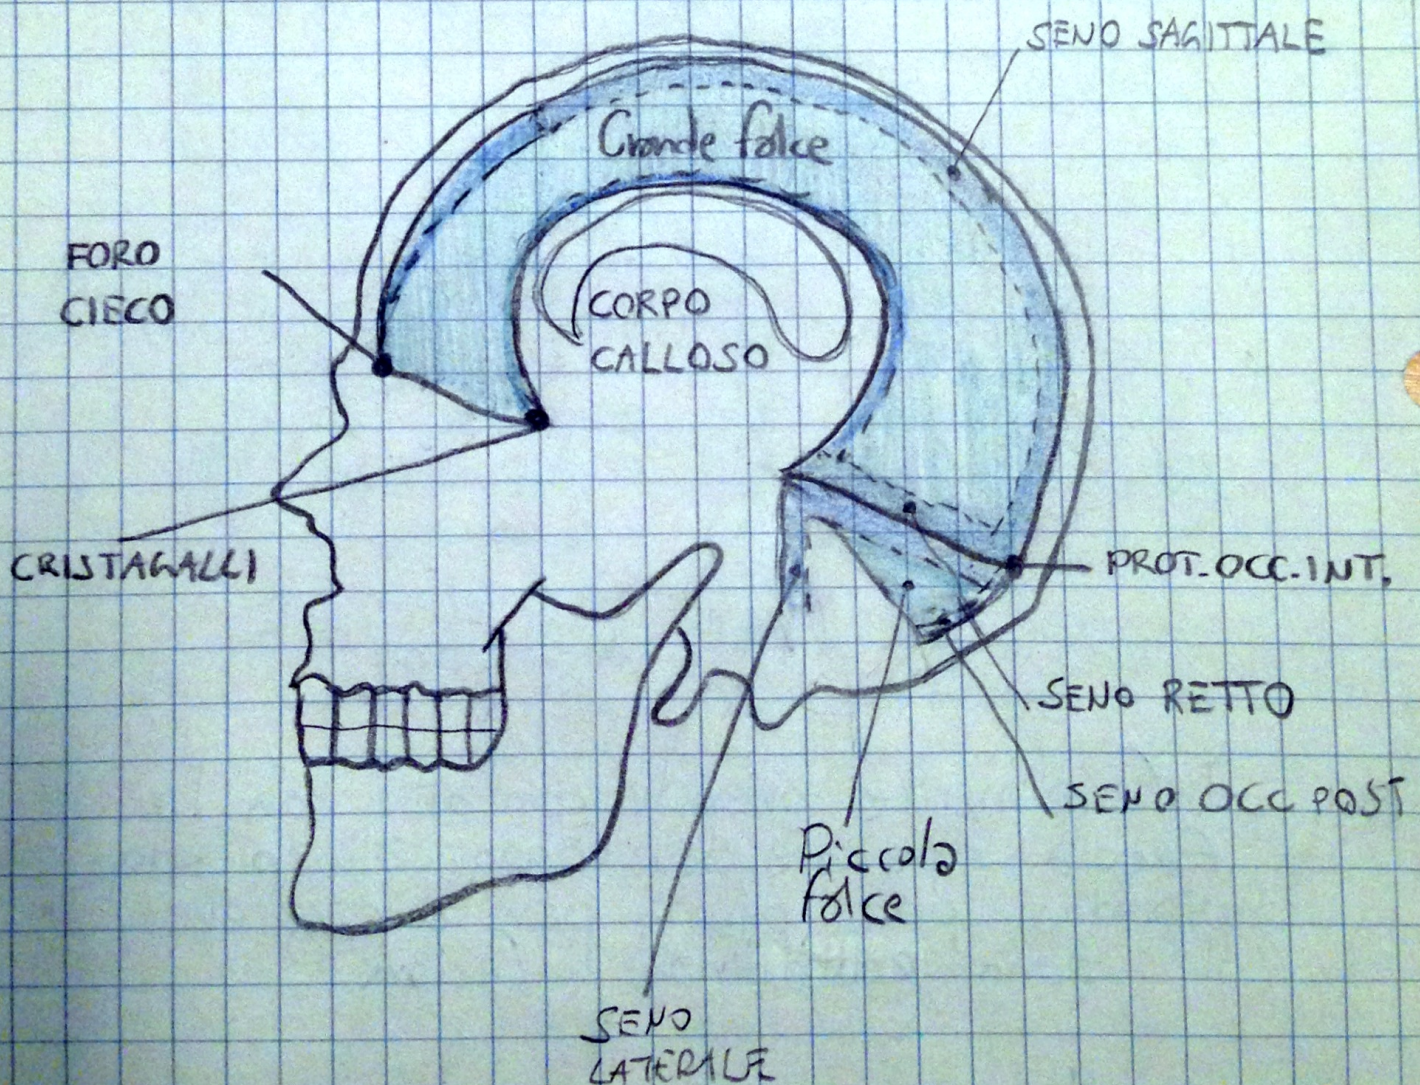 SENO SAGITTALE
Grande falce
FORO
CIECO
CORPO
CALLOSO
CRISTAGALLI
PROT.OCC.INT.
SENO RETTO
SENO OCC POST
Piccola
falce
SENO
LATERALE